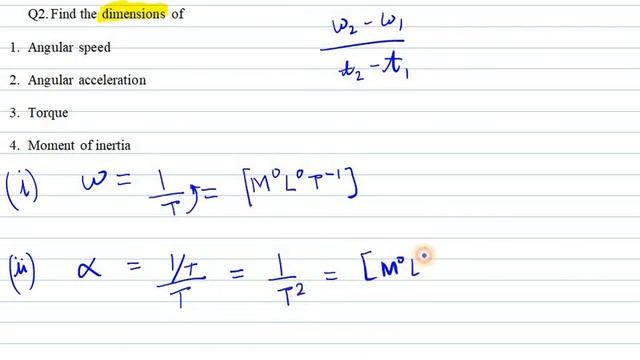 Q2. Find the dimensions of
1. Angular speed
2. Angular acceleration
3. Torque
4. Moment of inertia
ω₂ - ω₁ / t₂ - t₁
(i) ω = 1/T = [M⁰L⁰T⁻¹]
(ii) α = 1/T/T = 1/T² = [M⁰L